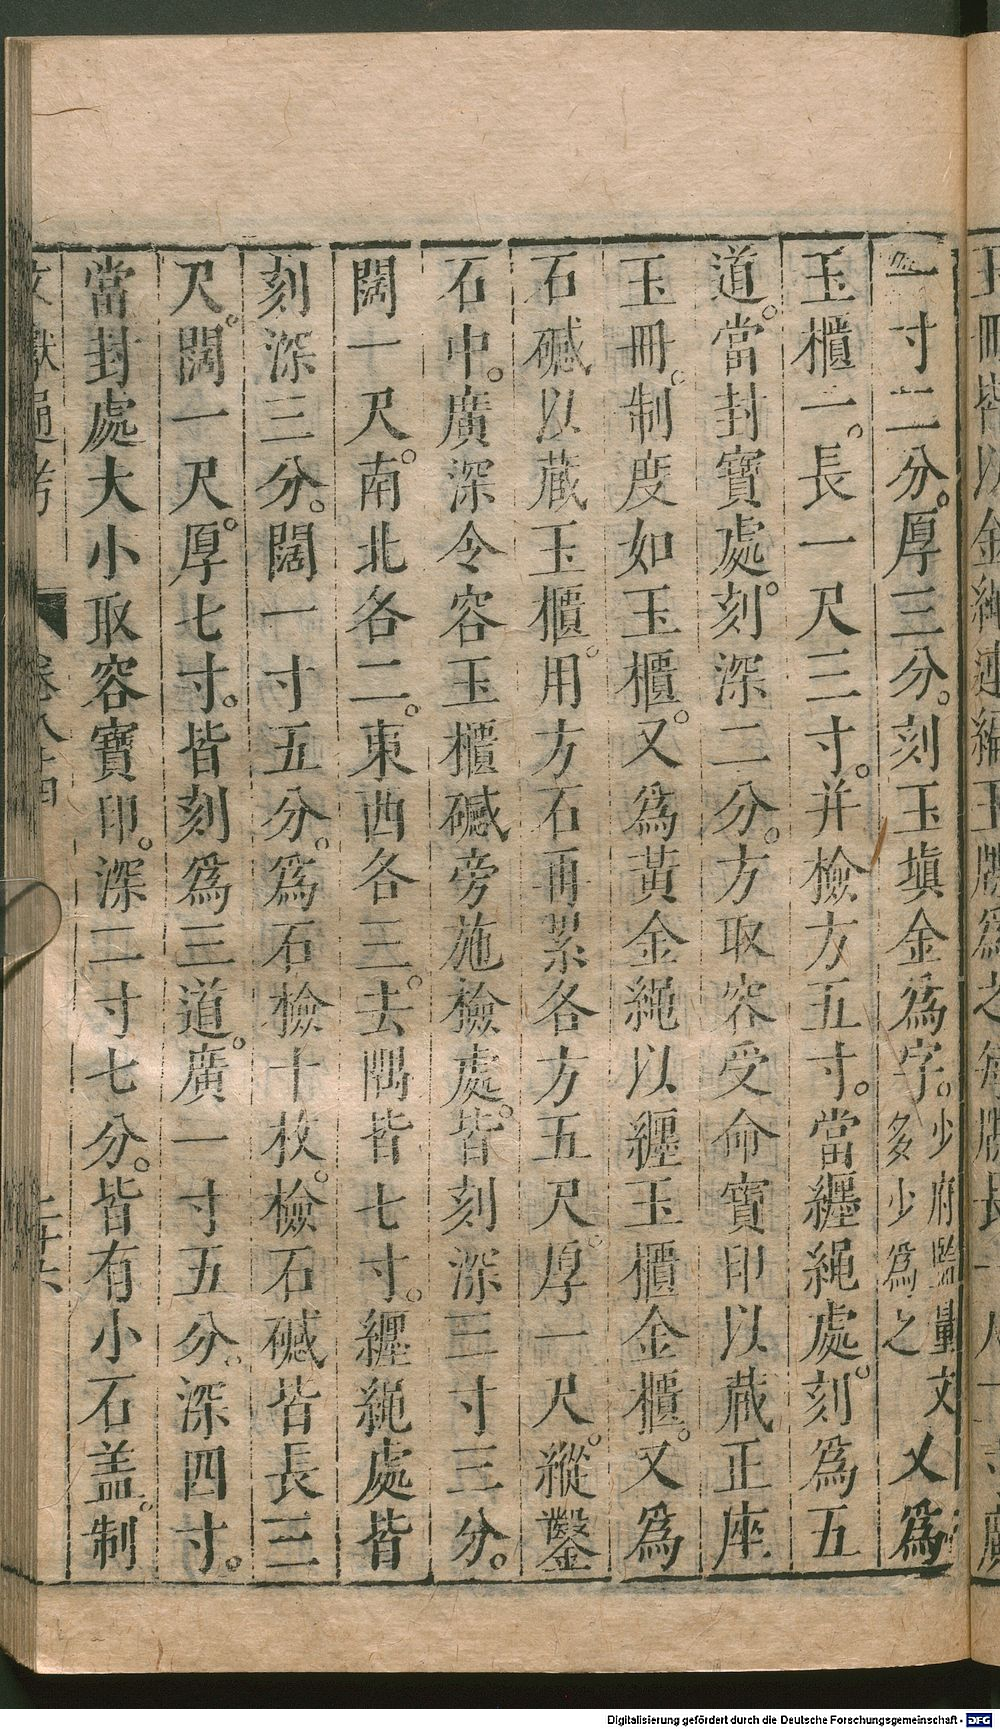 玉冊皆以金繩連編玉牒爲之每牒長一尺
一寸二分。厚三分。刻玉塡金爲字。少府監量文多少爲之又爲
玉櫃一。長一尺三寸。并檢方五寸。當纒繩處。刻爲五
道。當封寶處。刻深二分。方取容受命寶印以藏正座
玉冊。制度如玉櫃。又爲黃金繩以纒玉櫃金櫃。又爲
石䃭以藏玉櫃。用方石再累各方五尺。厚一尺。縱鑿
石中。廣深令容玉櫃䃭旁施檢處。皆刻深三寸三分。
闊一尺。南北各二。東西各三。去隅皆七寸。纒繩處皆
刻深三分。闊一寸五分。爲石檢十枚。檢石䃭皆長三
尺。闊一尺。厚七寸。皆刻爲三道。廣一寸五分。深四寸。
當封處大小取容寶印。深二寸七分。皆有小石盖。制
文獻通考 卷八十四 二十六
Digitalisierung gefördert durch die Deutsche Forschungsgemeinschaft - DFG